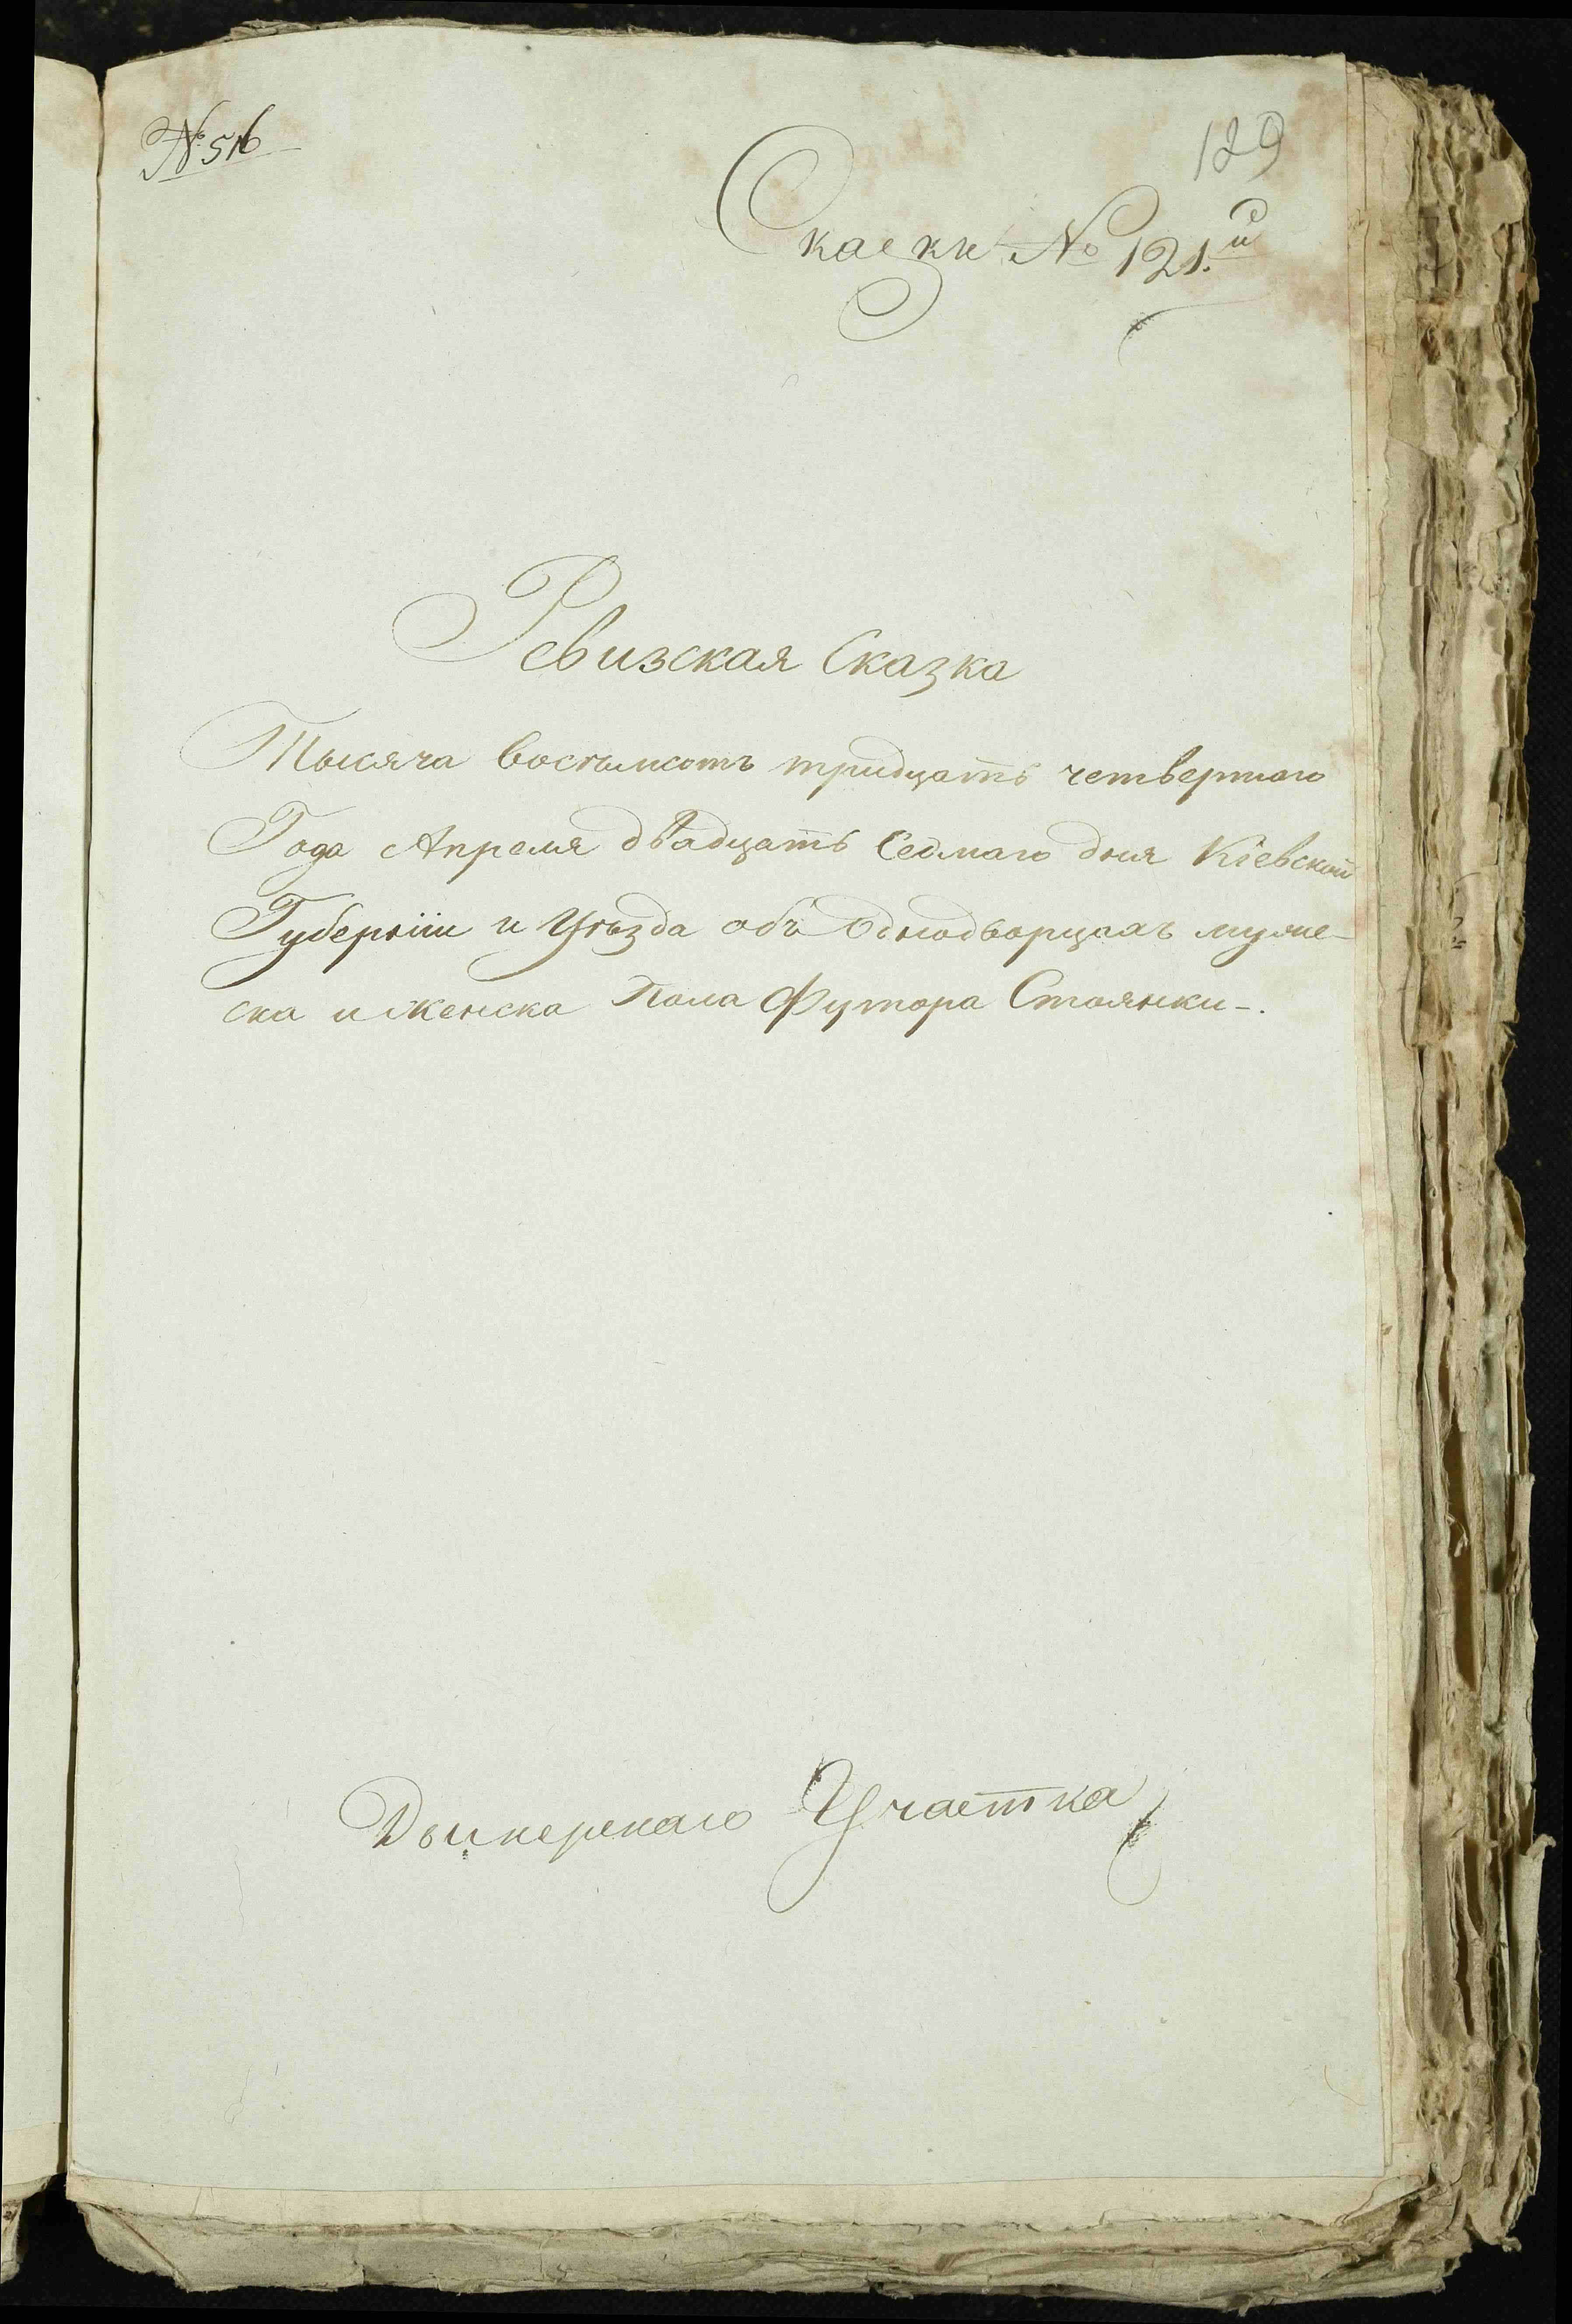 № 516
129
Сказки № 121.й
Ревизская Сказка
Тысяча восемьсотъ тридцать четвертаго
Года Апреля двадцать Седмаго дня Кіевской
Губерніи и Уѣзда объ Однодворцахъ муже-
ска и женска Пола Футора Стоянки-.
Дымерскаго Участка